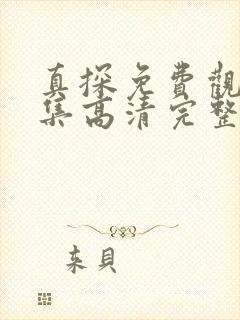 真探免費觀
集高清完整
来貝